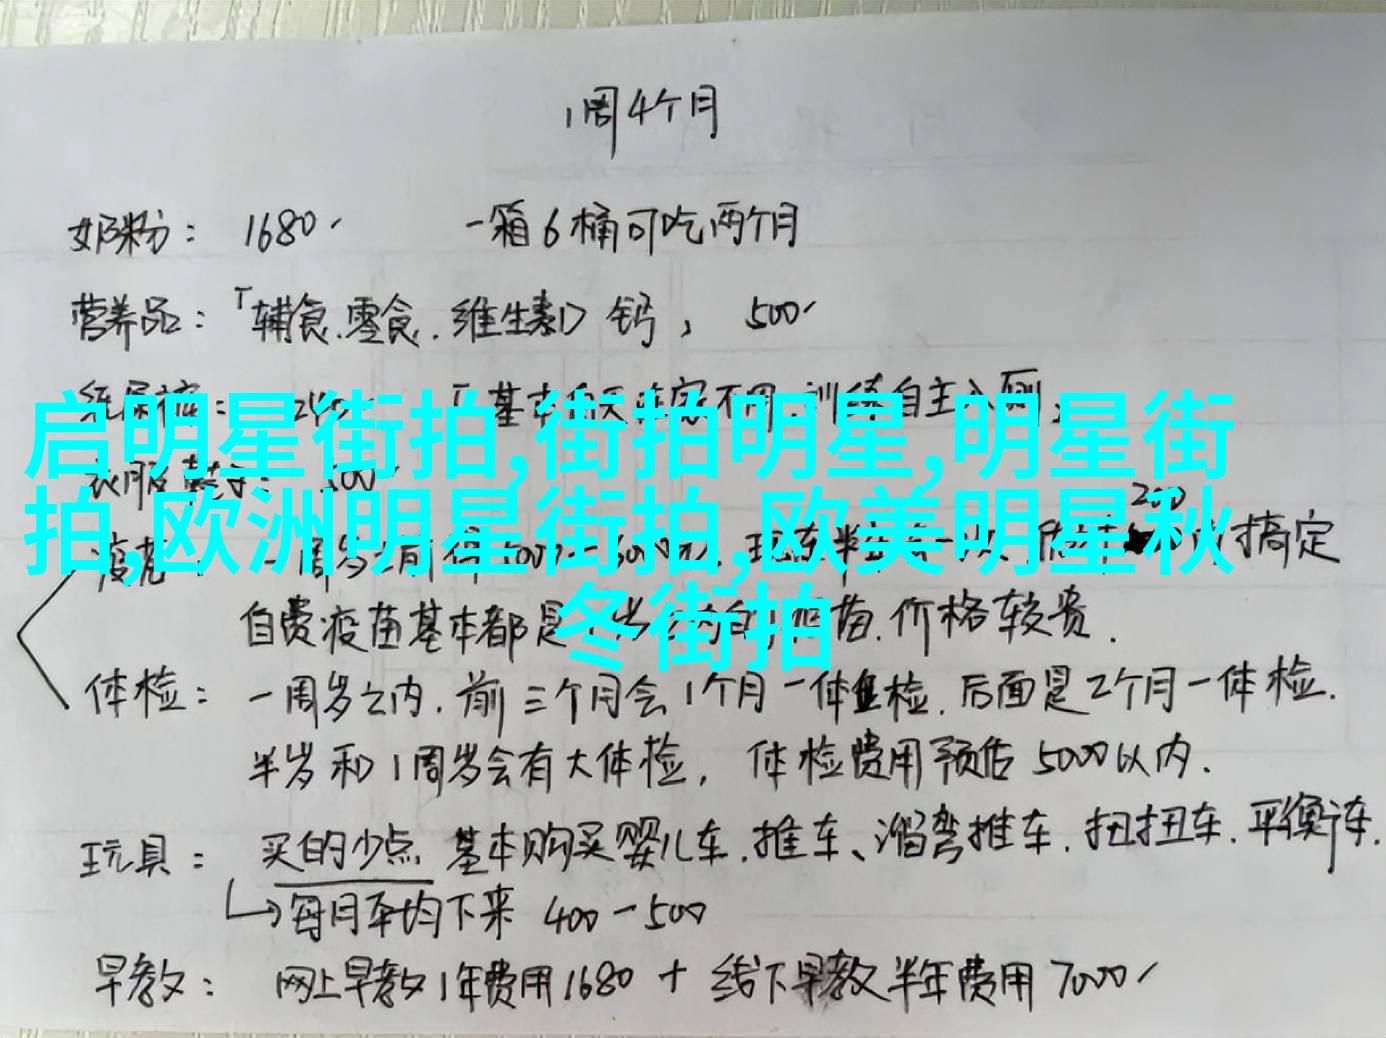 1周4个月
奶粉： 1680 一箱6桶可吃两个月
营养品：「辅食.零食.维生素D 钙, 500
不用 训练自主入厕,
启明星街拍,街拍明星,明星街
拍,欧洲明星街拍,欧美明星秋
冬街拍
200
搞定
自费疫苗基本都是 苗.价格较贵.
体检： 一周岁之内.前三个月会1个月一体检.后面是2个月一体检.
半岁和1周岁会有大体检, 体检费用预估5000以内.
玩具： 买的少点 基本购买婴儿车.推车、溜弯推车.扭扭车.平衡车.
每月平均下来 400-500
早教： 网上早教1年费用1680 + 线下早教半年费用7000